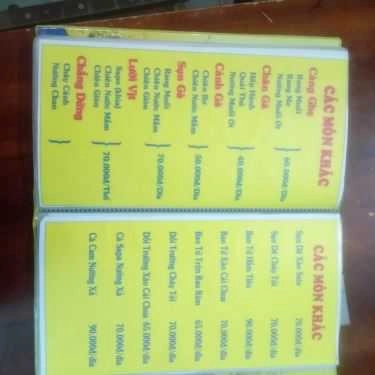 CÁC MÓN KHÁC
Càng Ghẹ
Rang Muối
Rang Me
Nướng Muối Ớt
60.000đ/Dĩa
Chân Gà
Hấp Hành
Quái Thú
Nướng Muối Ớt
40.000đ/Dĩa
Cánh Gà
Chiên Bơ
Chiên Nước Mắm
50.000đ/Dĩa
Sụn Gà
Rang Muối
Chiên Nước Mắm
Chiên Giòn
70.000đ/Dĩa
Lưỡi Vịt
Sapo (khìa)
Chiên Nước Mắm
Chiên Giòn
70.000đ/Thố
Chẳng Dừng
Cháy Cạnh
Nướng Chao
CÁC MÓN KHÁC
Sụn Dê Xào Sate 70.000đ/dĩa
Sụn Dê Cháy Tỏi 70.000đ/dĩa
Bao Tử Hầm Tiêu 90.000đ/dĩa
Bao Tử Xào Cải Chua 70.000đ/dĩa
Bao Tử Trộn Rau Răm 65.000đ/dĩa
Dồi Trường Cháy Tỏi 70.000đ/dĩa
Dồi Trường Xào Cải Chua 65.000đ/dĩa
Cá Sapa Nướng Xả 70.000đ/dĩa
Cá Cam Nướng Xả 90.000đ/dĩa